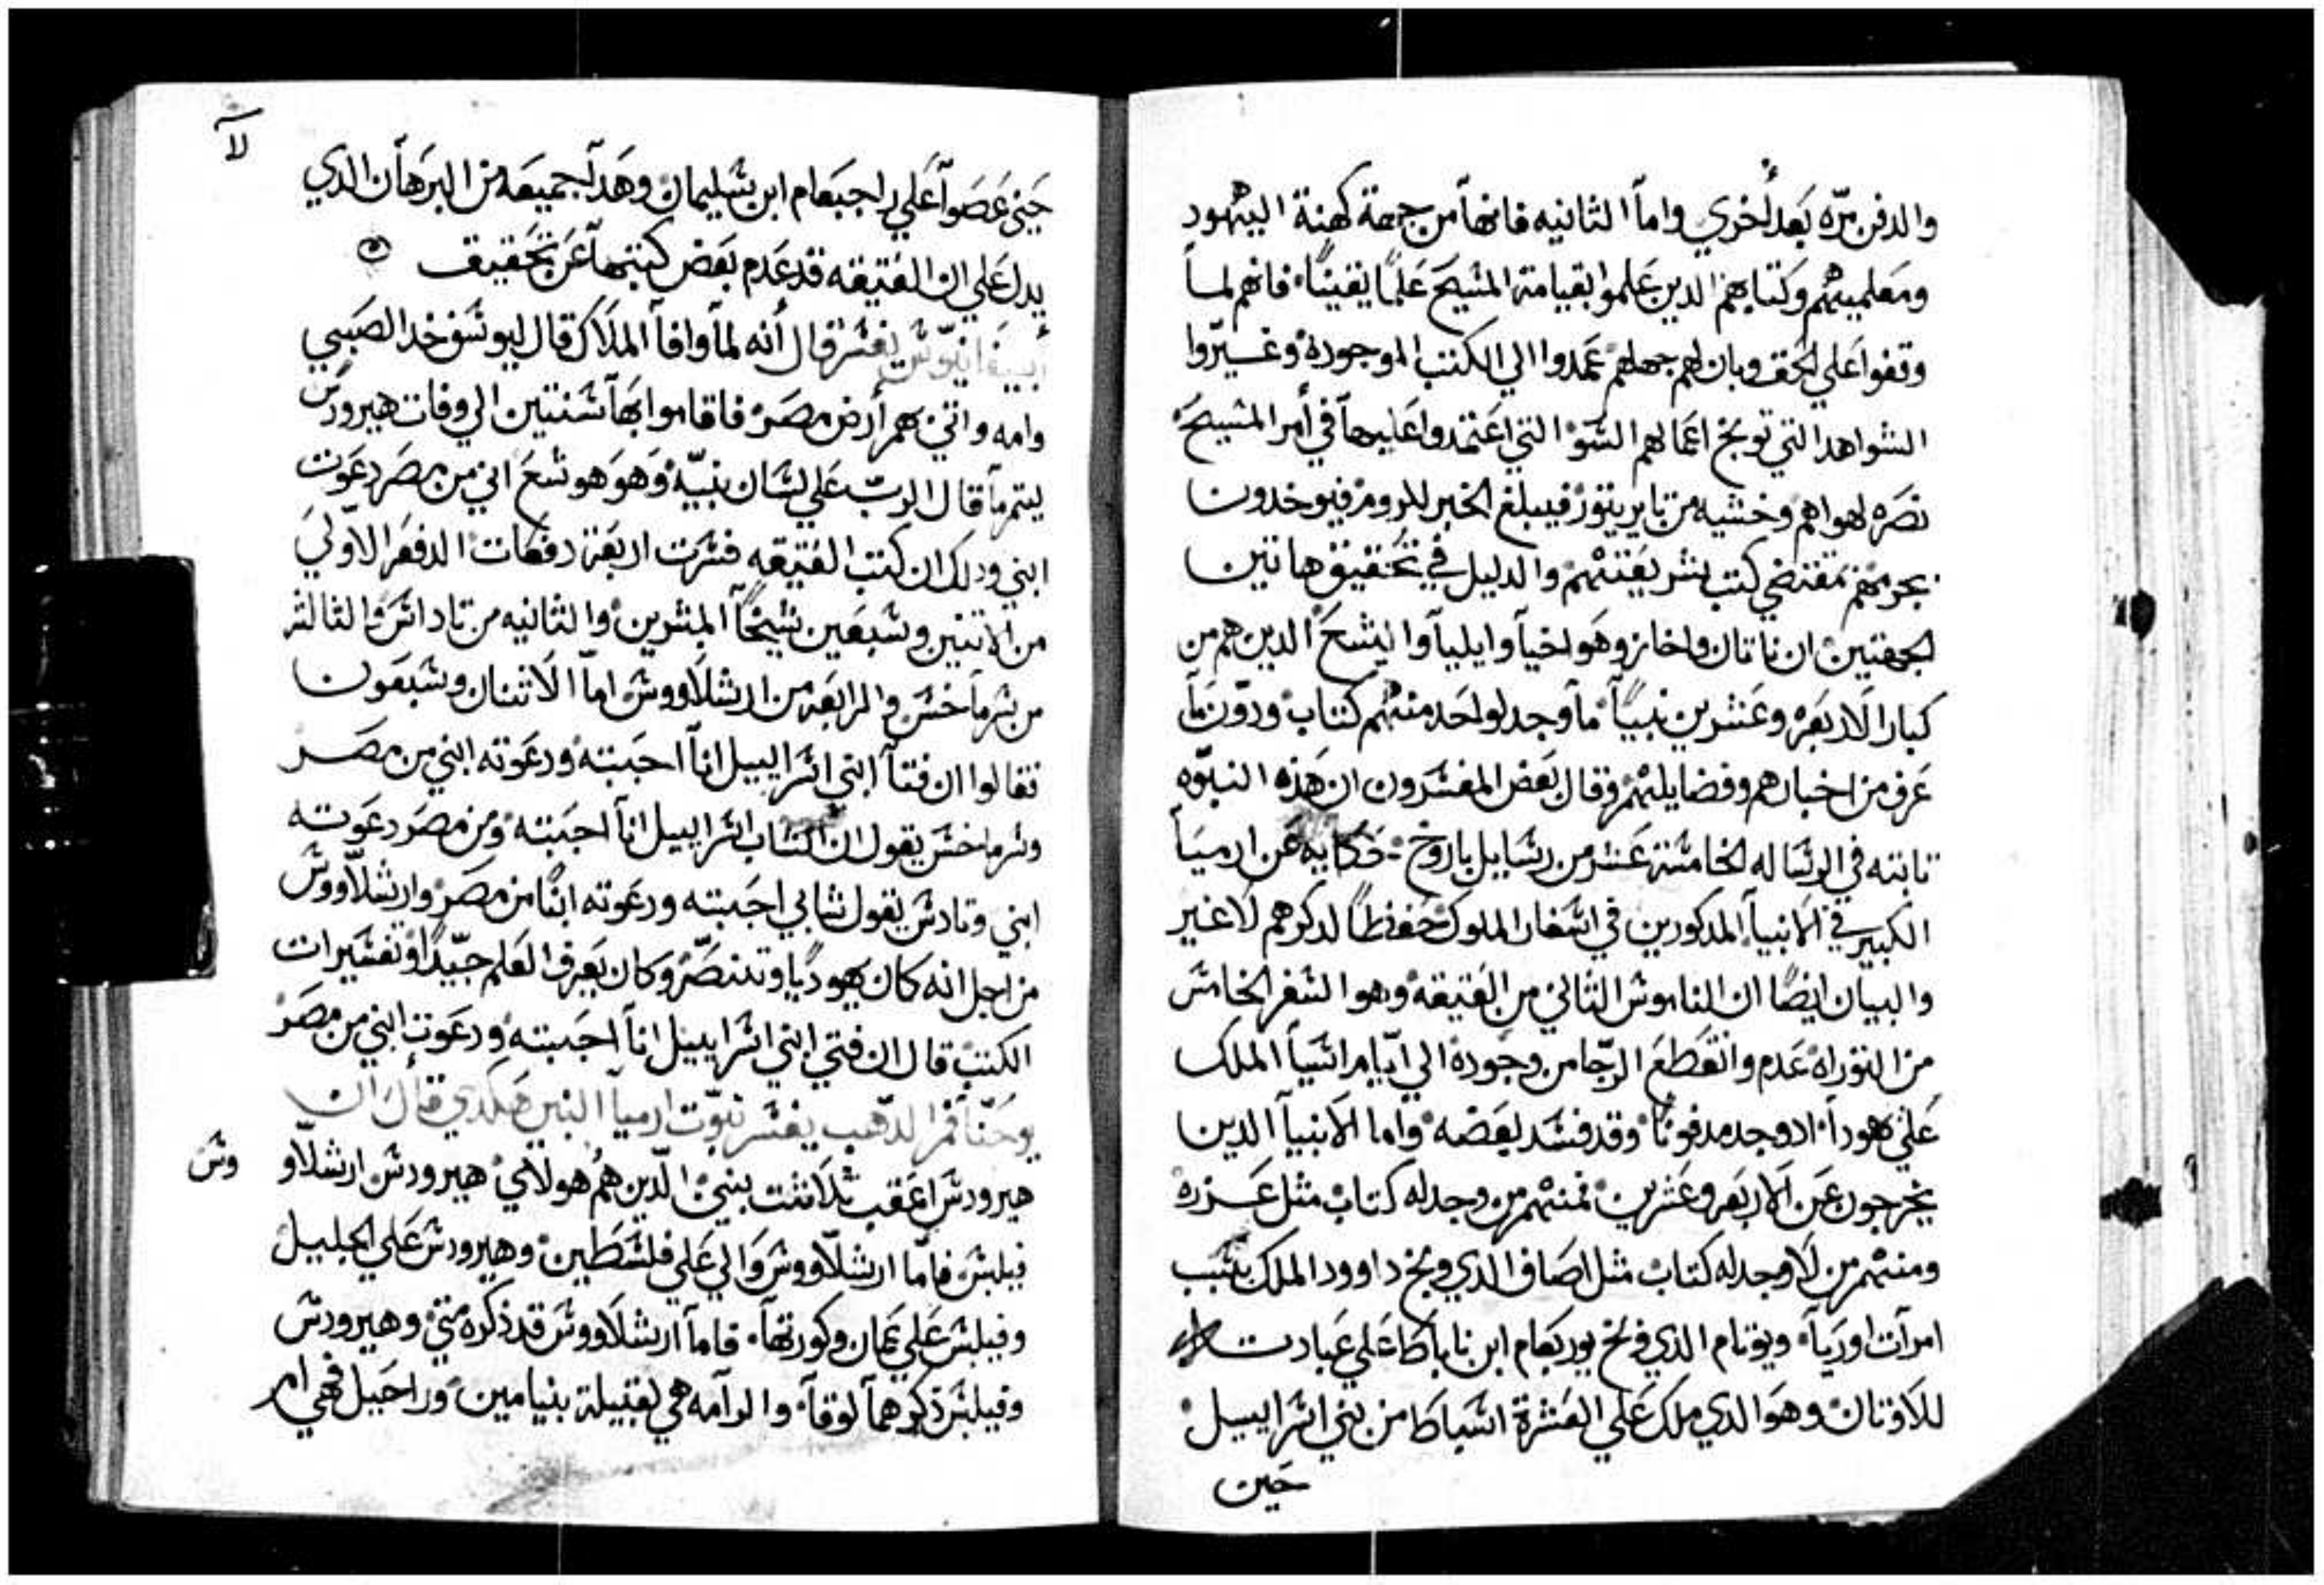 والدفن مرّه بَعد أُخري واماّ الثانيه فانهاّ من جهة كهنة اليهود
ومَعلميهم وكتابهم الدين عَلموا بقيامة المشيحَ عَلمًا يقينًا فانهم لماّ
وقفوا عَلي الحَق وبان لهم جهلهم عَمدوا الي الكتب الموجوده وغيّروا
الشواهد التي توبخ اعمالهم الشو التي اعَتمدوا عَليهاّ في أمر المشيحَ
نصَره لهواهم وخشيه من فيبلغ الخبر للروم فيوخدون
بجرمهم بمقتضي كتب شريعَتهم والدليل في تحَقيق هاتين
الجهتين ان ناتان واخاز وهوَ اخياّ وايلياّ واليشعَ الدين هم من
كبار الاربعَه وعَشرين نبيّاً ماّ وجد لواحَد منهم كتاب ودوّن ماّ
عَرف من اخبارهم وفضايلهم وقال بعَض المفشرون ان هَذه النبوّه
تابته في الرشاله الخامشة عَشر من رشايل باروخ حَكايه عَن ارميَا
الكبير في الانبياّ المدكورين في اشفار الملوك حَفظاً لدكرهم لا غير
والبيان ايضًا ان الناموش التاني من العَتيقه وهو الشفر الخامش
من التوراه عَدم وانقطعَ الرجّا من وجوده الي ايّام اشيا الملك
عَلي يهوداّ ادوجد مدفونًا وقد فشد بعَضه واما الانبياّ الدين
يخرجون عَن الاربعَه وعَشرين فمنهم من وجد له كتاب مثل عَزره
ومنهم من لا وجد له كتاب مثل اصَاف الدي وبخ داوود الملك بشَبب
امرآت اورَياّ ويونام الدي وبخ يوربعَام ابن ناباطَا عَلي عَبادت
للاوتان وهوَ الدي ملك عَلي العَشرة اشباطَا من بني اشراييل
حَين
لا
حَين عَصَواّ عَلي راحبعَام ابن شليمان وهَداّ جميعَه من البرَهاّن الدي
يدل عَلي ان العَتيقه قد عَدم بعَض كتبهاّ عَن تحَقيق
يفشر قال أنه لماّ وافاّ الملَاك قال ليوشف خد الصَبي
وامه واتي بهم أرض مصَر فاقاموا بَهاّ شنتين الي وفات هيرودش
ليتم ماّ قال الربّ عَلي لشان نبيّه وَهوَ هوشعَ اني من مصَر دعَوت
ابني ودلك ان كتب العَتيقه فشرت اربعَة دفعَات الدفعَه الاوّليَ
من الاتنين وشبعَين شيخًاّ المفشرين والثانيه من تاداشَن والثالثه
من شرماّخشَ والرابعَه من ارشلاووش اماّ الاتنان وشبعَون
فقالوا ان فتاّ ابني اشراييل اناّ احَببته ودعَوته ابني من مصَر
وشرماخشَ يقول ان الشاب اشراييل اناّ احَببته ومن مصَر دعَوته
ابني وتادشَ يقول شابي احَببته ودعَوته ابنًا من مصَر وارشلاّووشَ
من اجل انه كان يهوديًا وتنصَّر وكان يعَرف العَلم جيّداً وتفشيرات
الكتب قال ان فتي ابني اشراييل اناّ احَببته ودعَوت ابني من مصَر
يوحَناّ فم الدّهب يفشر نبوّت ارمياّ النبي هَكدي قاّل ان
هيرودشَ اعَقب ثلَاثت بنيَ الدّين هُم هولَايَ هيرودش ارشلاّو وش
فيلبش فامّا ارشلاّووش وَالي عَلي فلشَطين وهيرودش عَلي الجليل
وفيلبش عَلي عَمان وكورتهاّ فاماّ ارشلَاووش قد ذكره متيَ وهيرودش
وفيلبش ذكرهماّ لوقاّ والرآمه هي لقبيلة بنيامين وَراحَيل فهي ام